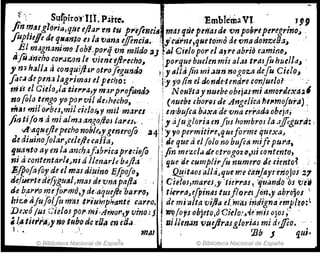 Suſpiros III. Parte.
fin mas gloria, que eſtar en tu preſencia
ſupliſſe de quanto es la vana eſſencia.
El magnanimo Iob †. porq vn mundo 23
à ſu ancho coraçon le viene eſtrecho,
y no halla à conquiſtar otro ſegundo
ſaca de penas lagrimas el pecho:
mis el Cielo, la tierra, y mar profundo
no ſolo tengo yo por vil deshecho,
mas mil orbes, mil cielos, y mil mares
ſin ti ſon à mi alma angoſtos lares.
A aqueſte pecho noble, y generoſo 24
de diuino ſolar, celeſte caſia,
quanto ay en la ancha fabrica precioſo
ni à contentarle, ni à llenarle baſta
Eſpoſa ſoy de el mas diuino Eſpoſo,
deſuerte deſygual, mas de vna paſta
de barro me formò, y de aqueſte barro,
hizo à ſu ſol ſu mas triumphante carro.
Dexò ſus Cielos por mi Amor, y vino: s
à la tierra, y no tubo de ella en ella
mas
Emblema VI 199
mas que penas de vn pobre peregrino,
y carne, que tomò de vna donzella,
al Cielo por el ayre abriò camino,
porque buelen mis alas tras ſu huella,
y allà ſin mi aun no goza de ſu Cielo,
y yo ſin el donde tendre conſuelo?
Nouſta y nuebe obejas mi amor dexa 26
(nuebe choros de Angelica hermoſura)
en buſca baxa de vna errada obeja,
y à ſu gloria en ſus hombros la aſſegura:
y yo permitire, que forme quexa,
de que à el ſolo no buſca mi fe pura,
ſin mezcla de otro gozo, ni contento,
que de cumplir ſu numero de ciento?
Quitaos allà, que me canſays enojos 27
Cielos, mares, y tierras, quando os veo
tierra, eſpinas tus flores ſon, y abrojos
de mi alta viſta el mas indigna empleo:
no ſoys objeto, ò Cielo, de mis ojos,
ni llenan vueſtras glorias mi deſſeo.
Bb 3 qui-
© Biblioteca Nacional de España
© Biblioteca Nacional de España